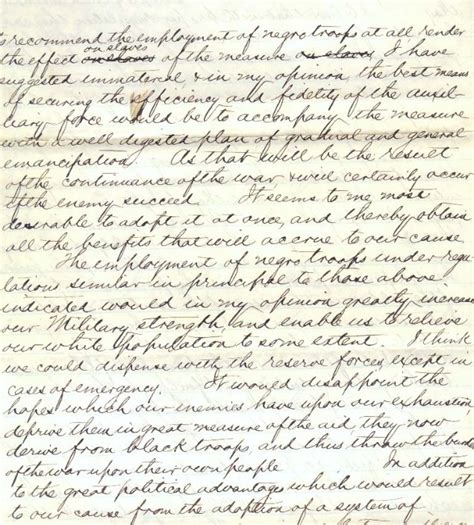 to recommend the employment of negro troops at all render
on slaves
the effect on slaves of the measure on slaves I have
suggested immaterial & in my opinion the best means
of securing the efficiency and fidelity of the auxil-
iary force would be to accompany the measure
with a well digested plan of gradual and general
emancipation. As that will be the result
of the continuance of the war & will certainly occur
if the enemy succeed It seems to me most
desirable to adopt it at once, and thereby obtain
all the benefits that will accrue to our cause
The employment of negro troops under regu-
lations similar in principal to those above
indicated would in my opinion greatly increase
our Military strength, and enable us to relieve
our white population to some extent. I think
we could dispense with the reserve forces except in
cases of emergency. It would disappoint the
hopes which our enemies have upon our exhaustion
deprive them in great measure of the aid they now
derive from black troops, and thus throw the burden
of the war upon their own people In addition
to the great political advantages which would result
to our cause from the adoption of a system of